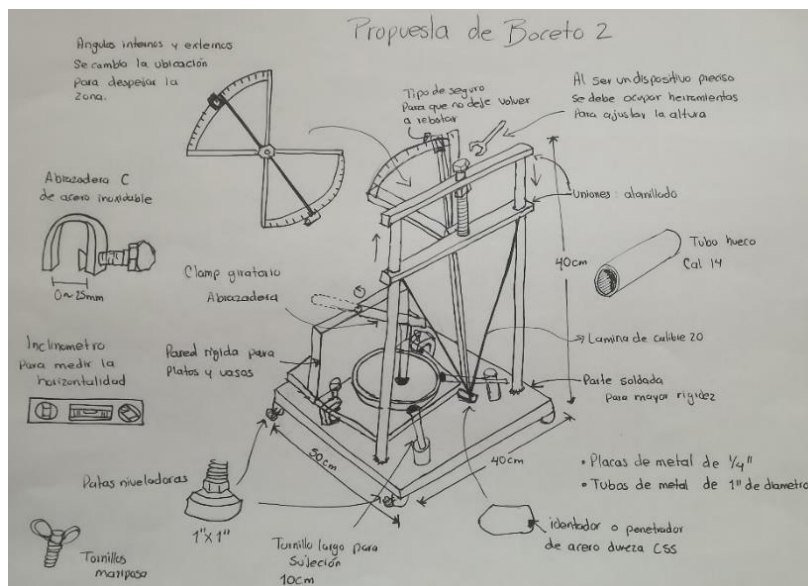 Propuesta de Boceto 2
Angulos internos y externos
Se cambia la ubicación
para despejar la
zona.
Tipo de seguro
Para que no deje volver
a rebotar
Al ser un dispositivo preciso
se debe ocupar herramientas
Para ajustar la altura
Abrazadera C
de acero inoxidable
0~25mm
Uniones: atornillado
40cm
Tubo hueco
Cal 14
Clamp giratorio
Abrazadera
Inclinometro
Para medir la
horizontalidad
Pared rígida para
Platos y vasos
Lamina de calibre 20
Parte soldada
para mayor rigidez
50cm
40cm
Patas niveladoras
1"x1"
• Placas de metal de 1/4"
• Tubos de metal de 1" de diametro
Tornillos
mariposa
Tornillo largo para
Sujeción
10cm
identador o penetrador
de acero dureza CSS